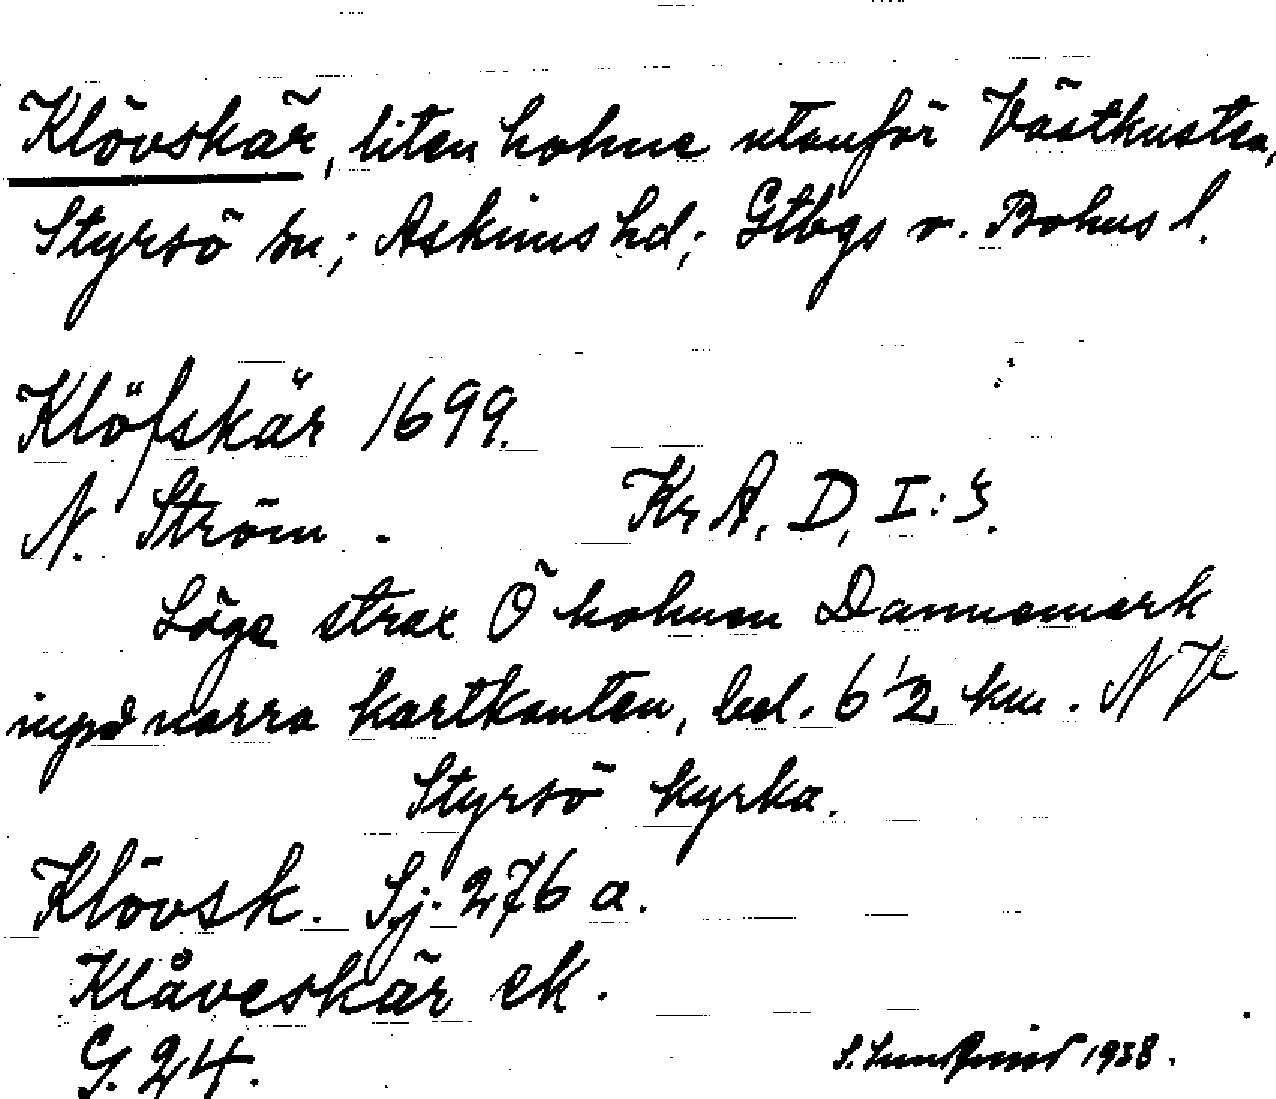 Klövskär, liten holme utanför Västkusten,
Styrsö sn; Askims hd; Gtbgs o. Bohus l.
Klöfskär 1699.
N. Ström. Kr A, D, I:3.
Läge strax Ö holmen Dannemark
inpå norra kartkanten, bel. 6 1/2 km. NV
Styrsö kyrka.
Klövsk. Sj. 276 a.
Klåveskär ek.
G. 24. 1938.